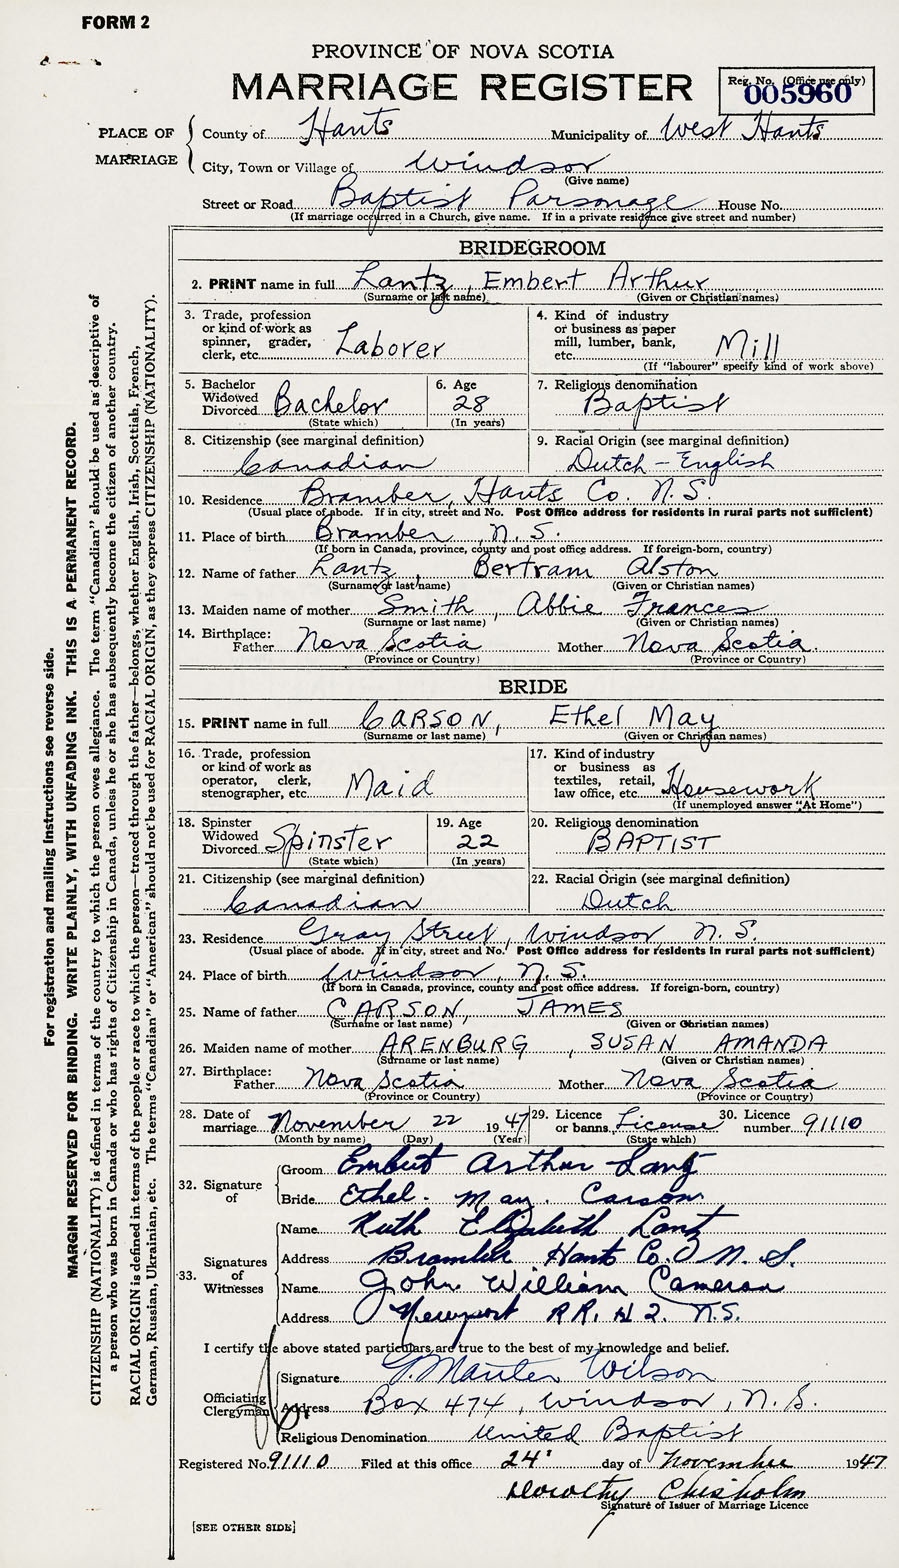 FORM 2
PROVINCE OF NOVA SCOTIA
MARRIAGE REGISTER
Reg. No. (Office use only)
005960
PLACE OF MARRIAGE
County of Hants Municipality of West Hants
City, Town or Village of Windsor
(Give name)
Street or Road Baptist Parsonage House No.
(If marriage occurred in a Church, give name. If in a private residence give street and number)
BRIDEGROOM
2. PRINT name in full Lantz, Embert Arthur
(Surname or last name) (Given or Christian names)
3. Trade, profession or kind of work as spinner, grader, clerk, etc. Laborer
4. Kind of industry or business as paper mill, lumber, bank, etc. Mill
(If "labourer" specify kind of work above)
5. Bachelor Widowed Divorced Bachelor
(State which)
6. Age 28
(In years)
7. Religious denomination
Baptist
8. Citizenship (see marginal definition)
Canadian
9. Racial Origin (see marginal definition)
Dutch - English
10. Residence Bramber, Hants Co. N.S.
(Usual place of abode. If in city, street and No. Post Office address for residents in rural parts not sufficient)
11. Place of birth Bramber, N.S.
(If born in Canada, province, county and post office address. If foreign-born, country)
12. Name of father Lantz, Bertram Alston
(Surname or last name) (Given or Christian names)
13. Maiden name of mother Smith, Abbie Frances
(Surname or last name) (Given or Christian names)
14. Birthplace: Father Nova Scotia Mother Nova Scotia.
(Province or Country) (Province or Country)
BRIDE
15. PRINT name in full CARSON, Ethel May
(Surname or last name) (Given or Christian names)
16. Trade, profession or kind of work as operator, clerk, stenographer, etc. Maid
17. Kind of industry or business as textiles, retail, law office, etc. Housework
(If unemployed answer "At Home")
18. Spinster Widowed Divorced Spinster
(State which)
19. Age 22
(In years)
20. Religious denomination
BAPTIST
21. Citizenship (see marginal definition)
Canadian
22. Racial Origin (see marginal definition)
Dutch
23. Residence Gray Street, Windsor N.S.
(Usual place of abode. If in city, street and No. Post Office address for residents in rural parts not sufficient)
24. Place of birth Windsor, N.S.
(If born in Canada, province, county and post office address. If foreign-born, country)
25. Name of father CARSON, JAMES
(Surname or last name) (Given or Christian names)
26. Maiden name of mother ARENBURG, SUSAN AMANDA
(Surname or last name) (Given or Christian names)
27. Birthplace: Father Nova Scotia Mother Nova Scotia
(Province or Country) (Province or Country)
28. Date of marriage November 22 1947
(Month by name) (Day) (Year)
29. Licence or banns License
(State which)
30. Licence number 91110
32. Signature of
Groom Embert Arthur Lantz
Bride Ethel. May. Carson
33. Signatures of Witnesses
Name Ruth Elizabeth Lantz
Address Bramber Hants Co. N. S.
Name John William Cameron
Address Newport RR. N 2. N.S.
I certify the above stated particulars are true to the best of my knowledge and belief.
Officiating Clergyman
Signature G. Manter Wilson
Address Box 474, Windsor, N.S.
Religious Denomination United Baptist
Registered No. 91110 Filed at this office 24' day of November 1947
Dorothy Chisholm
Signature of Issuer of Marriage Licence
[SEE OTHER SIDE]
For registration and mailing instructions see reverse side.
MARGIN RESERVED FOR BINDING. WRITE PLAINLY, WITH UNFADING INK. THIS IS A PERMANENT RECORD.
CITIZENSHIP (NATIONALITY) is defined in terms of the country to which the person owes allegiance. The term "Canadian" should be used as descriptive of
a person who was born in Canada or who has rights of Citizenship in Canada, unless he or she has subsequently become the citizen of another country.
RACIAL ORIGIN is defined in terms of the people or race to which the person—traced through the father—belongs, whether English, Irish, Scottish, French,
German, Russian, Ukrainian, etc. The terms "Canadian" or "American" should not be used for RACIAL ORIGIN, as they express CITIZENSHIP (NATIONALITY).